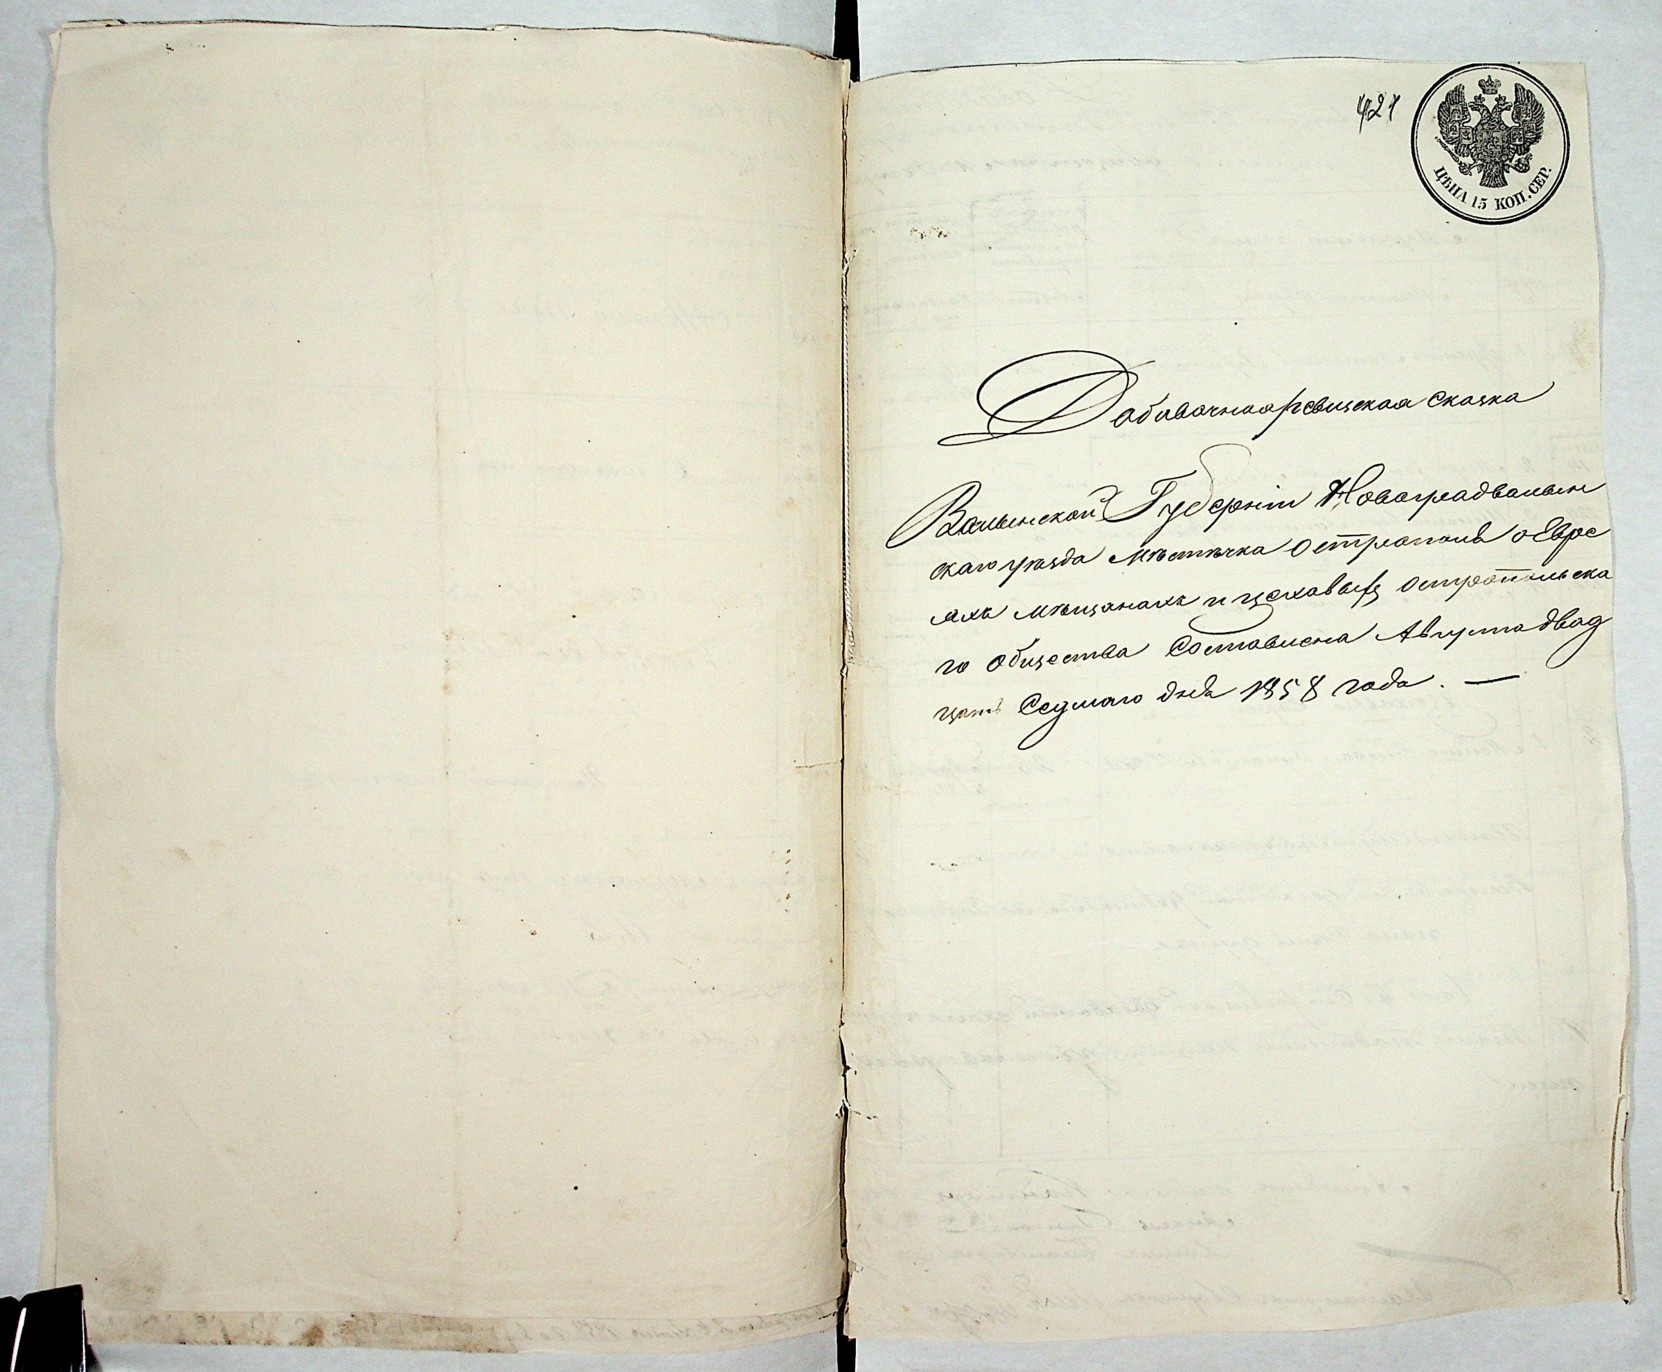 421
ЦѢНА 15 КОП. СЕР.
Добавочная ревизская сказка
Волынской Губерніи Новоградволын
скаго уѣзда мѣстечка Острополя о Евре
яхъ мѣщанахъ и цеховыхъ Остропольска
го Общества Составлена Августа двад
цать Седмаго дня 1858 года. —